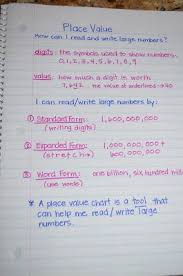 Place Value
How can I read and write large numbers?
digits: the symbols used to show numbers.
0,1,2,3,4,5,6,7,8,9
value: how much a digit is worth
7,642 the value of underlined → 40
I can read/write large numbers by:
① Standard Form: 1,600,000,000
(writing digits)
② Expanded Form: 1,000,000,000 +
(stretch →) 600,000,000
③ Word Form: one billion, six hundred mill
(use words)
* A place value chart is a tool that
can help me read/write large
numbers.